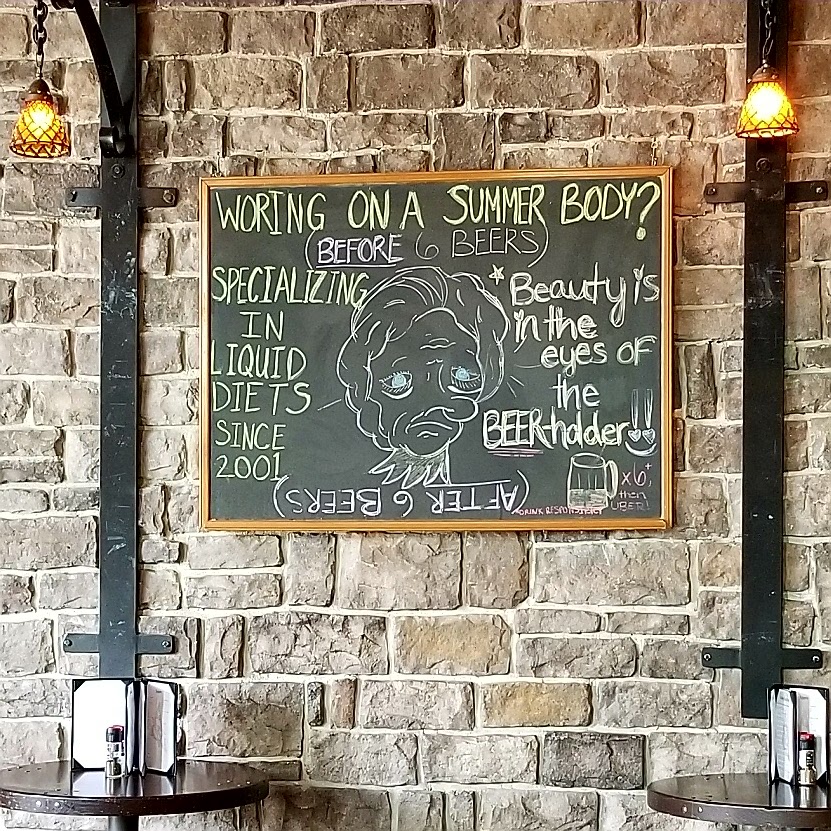 WORING ON A SUMMER BODY?
(BEFORE 6 BEERS)
SPECIALIZING
IN
LIQUID
DIETS
SINCE
2001
Beauty is
in the
eyes OF
the
BEER-holder!!
x6+,
then
UBER!
*DRINK RESPONSIBLY
(AFTER 6 BEERS)